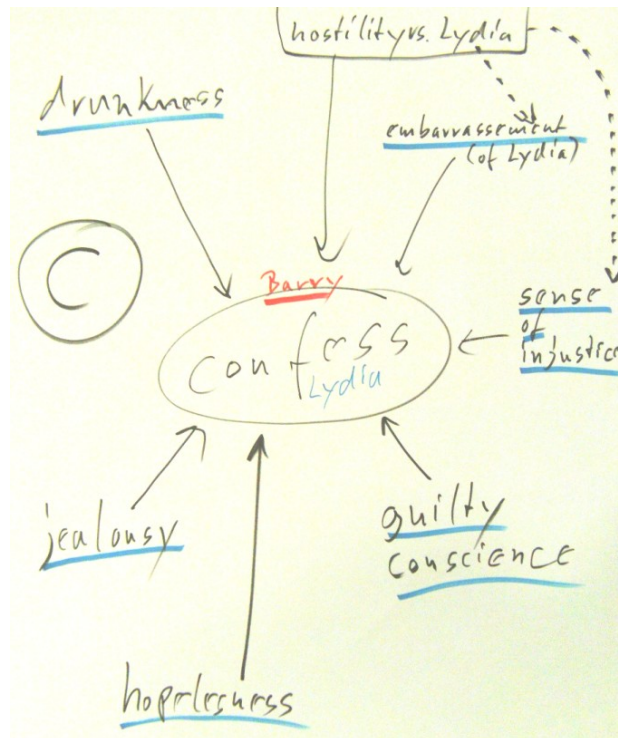 hostility vs. Lydia
drunkness
embarrassement
(of Lydia)
C
Barry
confess
Lydia
sense
of
injustice
jealousy
guilty
conscience
hopelesness